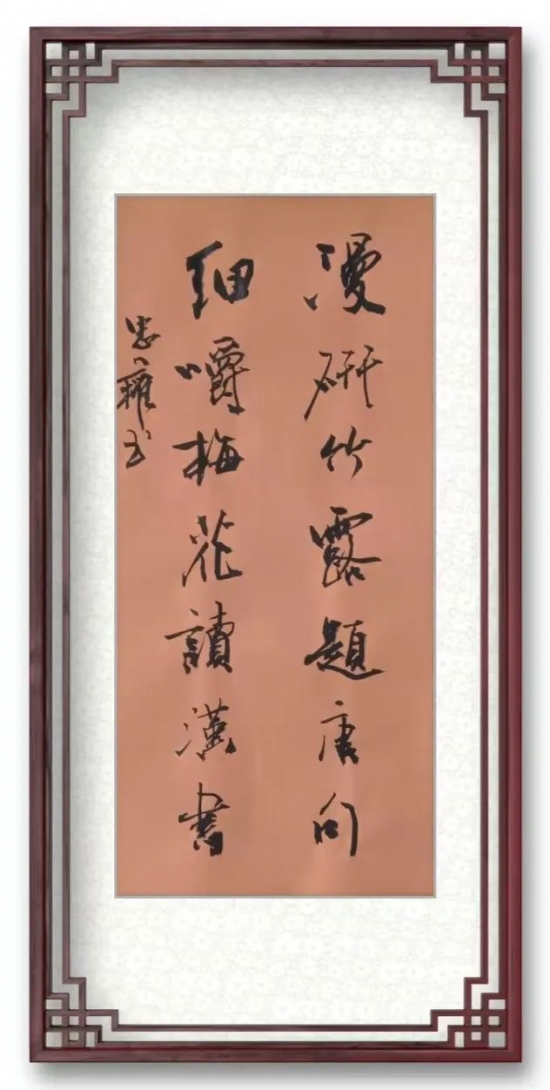 漫研竹露題唐句
細嚼梅花讀漢書
忠雍书